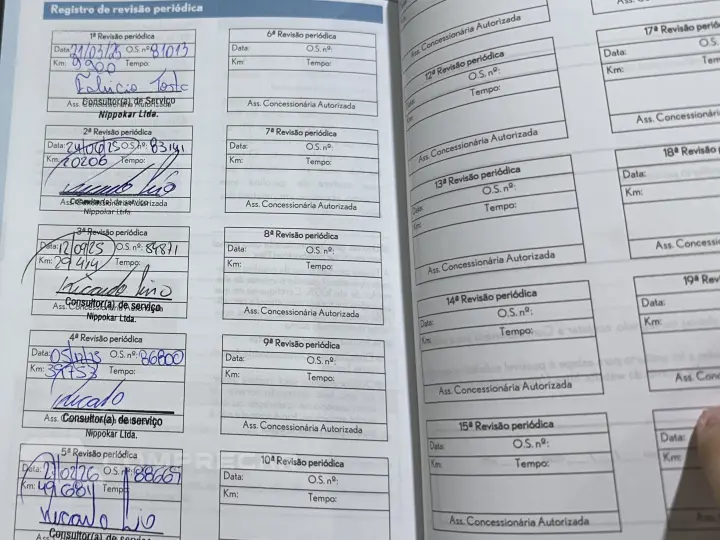 Registro de revisão periódica
1ª Revisão periódica
Data: 21/03/25 O.S. nº: 81013
Km: 9900 Tempo:
Ass. Concessionária Autorizada
Consultor(a) de Serviço
Nippokar Ltda.
2ª Revisão periódica
Data: 24/06/25 O.S. nº: 83141
Km: 20206 Tempo:
Ass. Concessionária Autorizada
Nippokar Ltda
3ª Revisão periódica
Data: 12/09/25 O.S. nº: 84871
Km: 29414 Tempo:
Ricardo Lirio
Consultor(a) de serviço
Ass. Concessionária Autorizada
Nippokar Ltda.
4ª Revisão periódica
Data: 05/12/25 O.S. nº: 86800
Km: 39753 Tempo:
Ricardo
Ass. Consultor(a) de serviço
Nippokar Ltda.
5ª Revisão periódica
Data: O.S. nº: 88667
Km: 49681 Tempo:
Ricardo Lirio
Consultor(a) de serviço
6ª Revisão periódica
Data: O.S. nº:
Km: Tempo:
Ass. Concessionária Autorizada
7ª Revisão periódica
Data: O.S. nº:
Km: Tempo:
Ass. Concessionária Autorizada
8ª Revisão periódica
Data: O.S. nº:
Km: Tempo:
Ass. Concessionária Autorizada
9ª Revisão periódica
Data: O.S. nº:
Km: Tempo:
Ass. Concessionária Autorizada
10ª Revisão periódica
Data: O.S. nº:
Km: Tempo:
Ass. Concessionária Autorizada
12ª Revisão periódica
Data: O.S. nº:
Km: Tempo:
Ass. Concessionária Autorizada
13ª Revisão periódica
Data: O.S. nº:
Km: Tempo:
Ass. Concessionária Autorizada
14ª Revisão periódica
Data: O.S. nº:
Km: Tempo:
Ass. Concessionária Autorizada
15ª Revisão periódica
Data: O.S. nº:
Km: Tempo:
Ass. Concessionária Autorizada
17ª Revisão
Data:
Km:
Ass. Concessionári
18ª Revisão
Data:
Km:
Ass. Concessi
19ª Re
Data:
Km:
Ass. Conc
Data:
Km: